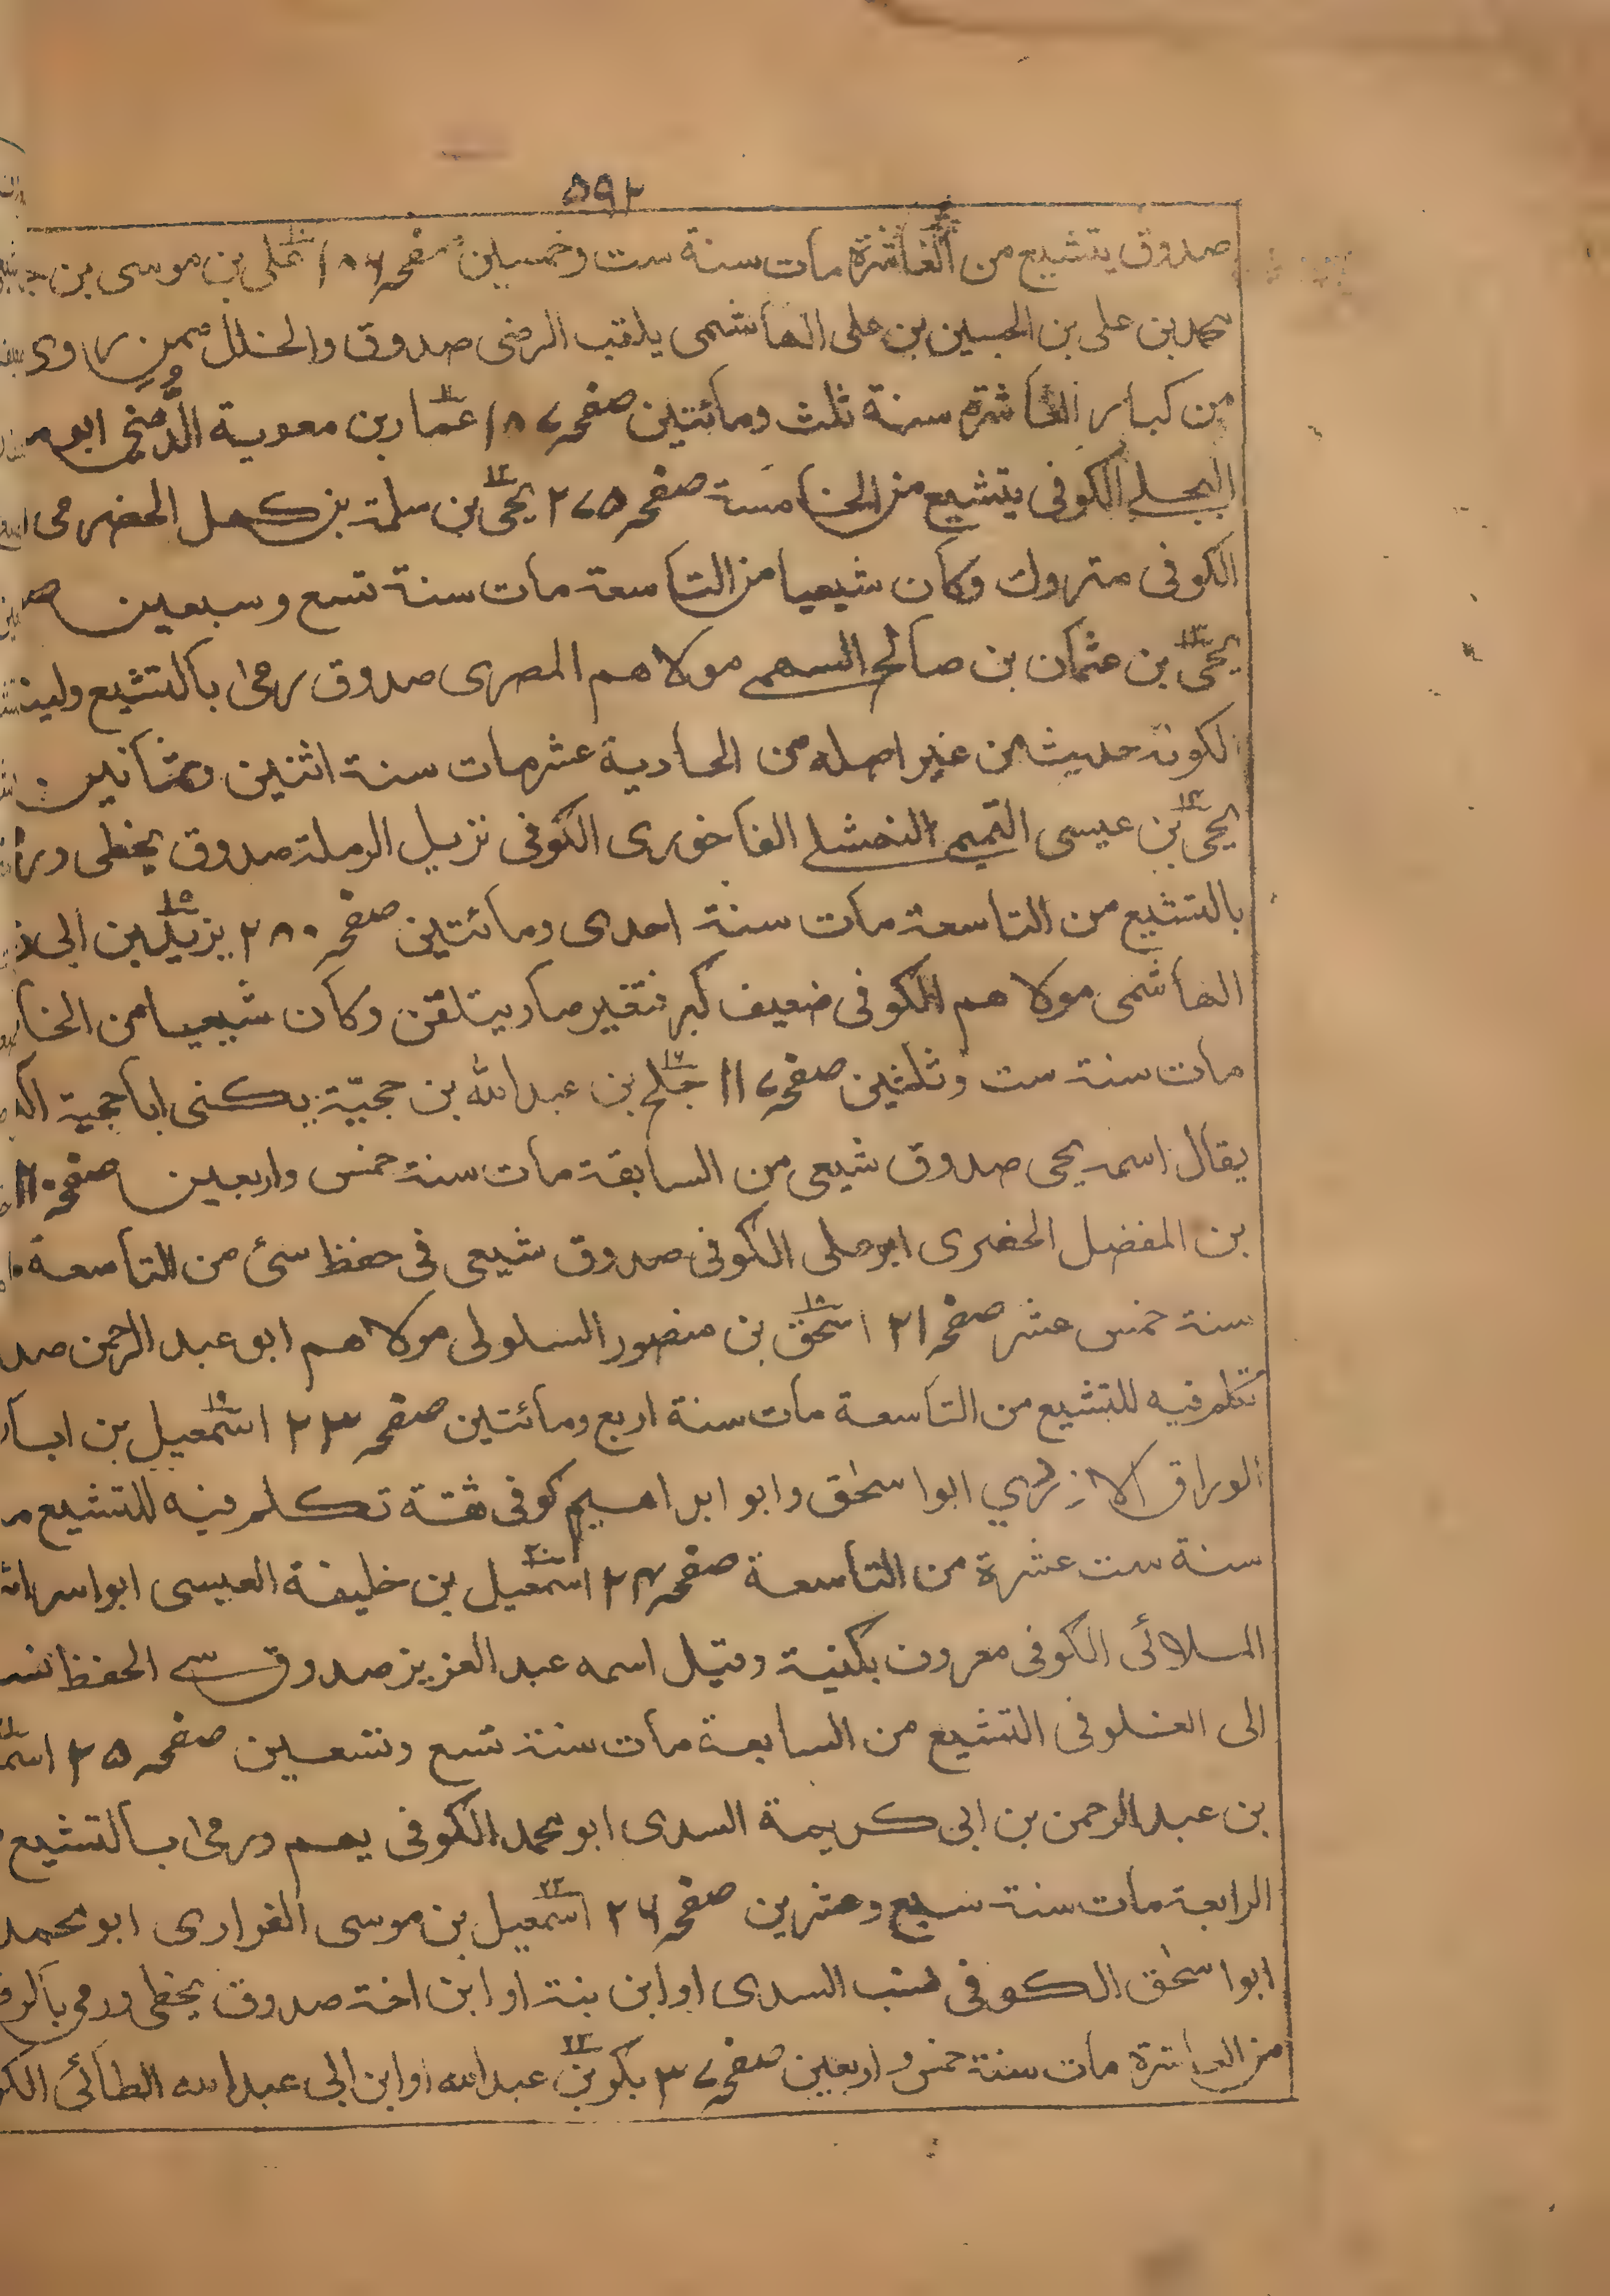 ٥٩٢
صدوق يتشيع من العاشرة مات سنة ست وخمسين صفحہ ١٨٦ علی بن موسى بن
محمد بن علی بن الحسين بن علی الهاشمی يلقب الرضی صدوق والخلل ممن راوی
من كبار العاشرة سنة ثلث ومائتين صفحہ ١٨٧ ١١ عمار بن معوية الدُّهنی ابو
البجلے الكوفی يتشيع من الخامسة صفحہ ٢٧٥ ١٢ يحیٰ بن سلمة بن كهل الحضرمی
الكوفی متروك وكان شيعيا من التاسعة مات سنة تسع وسبعين
١٣ يحیٰ بن عثمان بن صالح السهمے مولاهم المصری صدوق رمی بالتشيع ولينه
لكونه حديث من غير اصله من الحادية عشر مات سنة اثنين وثمانين
١٤ يحیٰ بن عيسى التميمے النهشلے الفاخوری الكوفی نزيل الرملة صدوق يخطی ور
بالتشيع من التاسعة مات سنة احدی ومائتين صفحہ ٢٨٠ ١٥ يزيد بن ابی
الهاشمی مولاهم الكوفی ضعيف كبر فتغير صار يتلقن وكان شيعيا من الخا
مات سنة ست وثلثين صفحہ ١١٧ جلح بن عبد الله بن حجيّة يكنی ابا حجية
يقال اسمه يحی صدوق شيعی من السابقة مات سنة خمس واربعين صفحہ
بن المفضل الحفری ابو علی الكوفی صدوق شيعی فی حفظ سئ من التاسعة
سنة خمس عشر صفحہ ٢١ ١٨ اسحٰق بن منصور السلولی مولاهم ابو عبد الرحمن صد
تكلم فيه للتشيع من التاسعة مات سنة اربع ومائتين صفحہ ٢٣ ١٩ اسمٰعيل بن ابا
الوراق الازدي ابو اسحٰق وابو ابراهيم كوفی ثقة تكلم فيه للتشيع
سنة ست عشرة من التاسعة صفحہ ٢٤ ٢٠ اسمٰعيل بن خليفة العبسی ابو اسرا
الملائی الكوفی معروف بكنية وقيل اسمه عبد العزيز صدوق سے الحفظ نسب
الی الغلو فی التشيع من السابعة مات سنة تسع وتسعين صفحہ ٢٥ اسم
بن عبد الرحمن بن ابی كريمة السدی ابو محمد الكوفی يهم ورمی بالتشيع
الرابعة مات سنة سبع وعشرين صفحہ ٢٦ ٢٢ اسمٰعيل بن موسى الفزاری ابو محمد
ابو اسحٰق الكوفی نسب السدی او ابن بنة او ابن اخة صدوق يخطی ورمی بالرف
من العاشرة مات سنة خمس و اربعين صفحہ ٣٧ ٢٣ بكر بن عبد الله او ابن ابی عبد الله الطائی